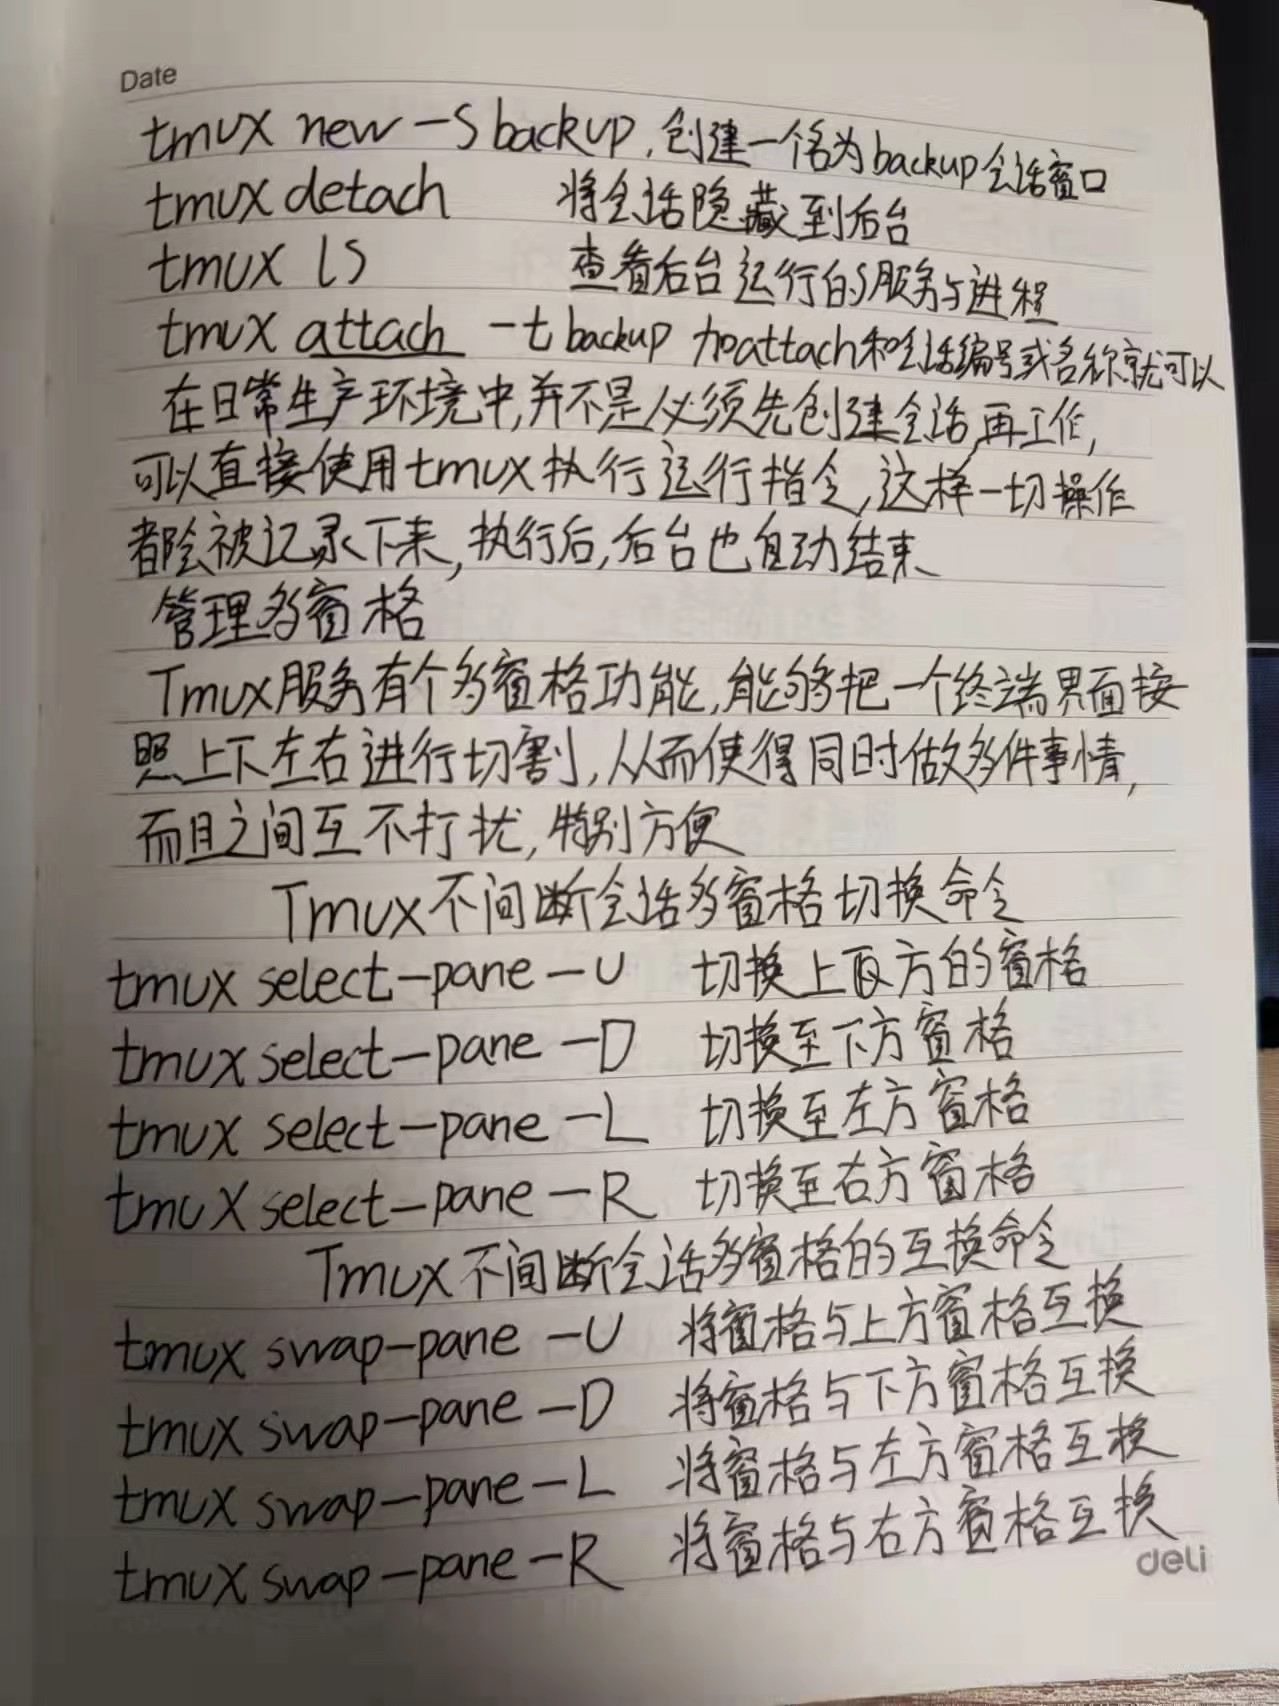 Date
tmux new -S backup,创建一个名为backup会话窗口
tmux detach 将会话隐藏到后台
tmux ls 查看后台运行的服务与进程
tmux attach -t backup 加attach和会话编号或名称就可以
在日常生产环境中,并不是必须先创建会话,再工作,
可以直接使用tmux执行运行指令,这样一切操作
都会被记录下来,执行后,后台也自动结束
管理多窗格
Tmux服务有个多窗格功能,能够把一个终端界面按
照上下左右进行切割,从而使得同时做多件事情,
而且之间互不打扰,特别方便
Tmux不间断会话多窗格切换命令
tmux select-pane -U 切换上方的窗格
tmux select-pane -D 切换至下方窗格
tmux select-pane -L 切换至左方窗格
tmux select-pane -R 切换至右方窗格
Tmux不间断会话多窗格的互换命令
tmux swap-pane -U 将窗格与上方窗格互换
tmux swap-pane -D 将窗格与下方窗格互换
tmux swap-pane -L 将窗格与左方窗格互换
tmux swap-pane -R 将窗格与右方窗格互换
deli